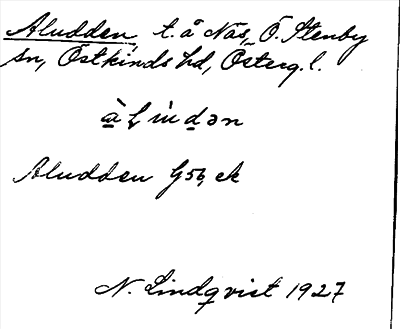 Aludden, t. å Näs, Ö. Stenby
sn, Östkinds hd, Österg. l.
Aludden G56, ek
N. Lindqvist 1927